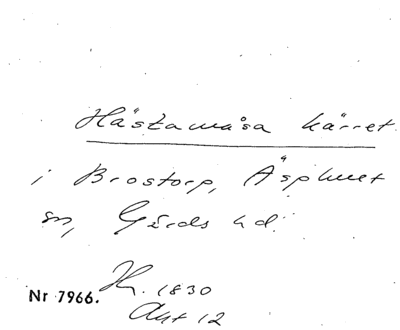 Hästamåsa kärret
i Brostorp, Äsphult
sn, Gärds hd.
Hk. 1830
Nr 7966.
Akt 12